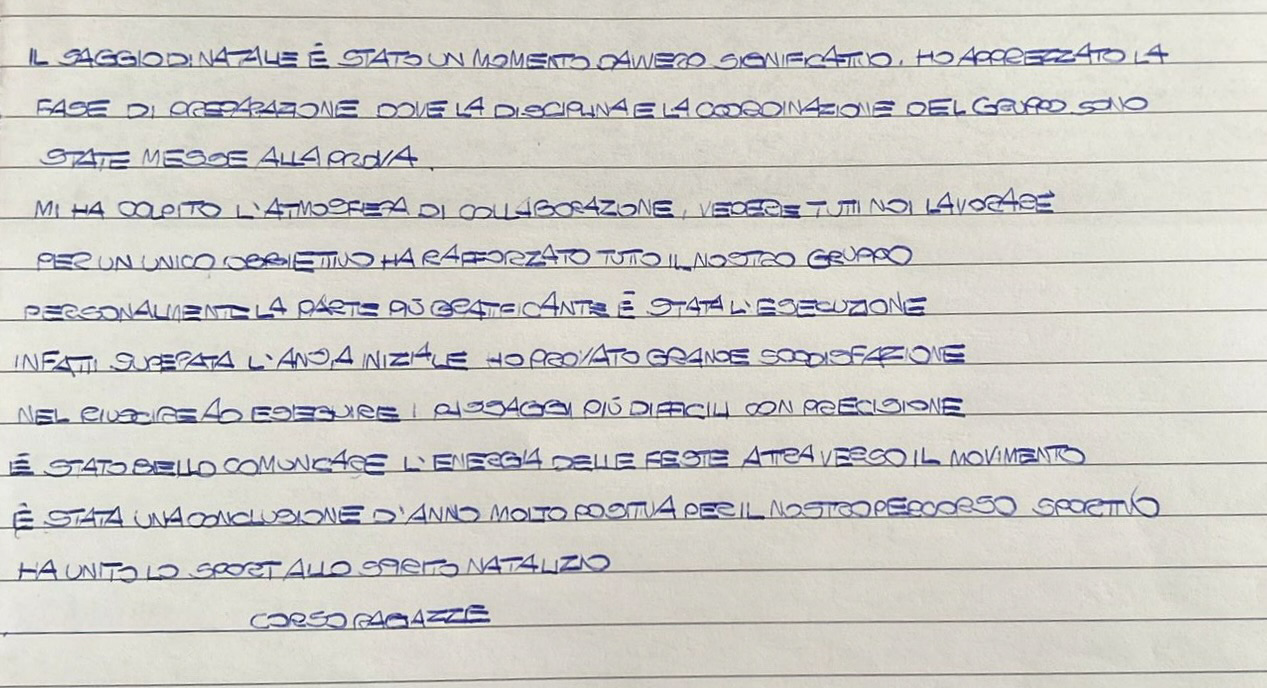 IL SAGGIO DI NATALE È STATO UN MOMENTO DAVVERO SIGNIFICATIVO. HO APPREZZATO LA
FASE DI PREPARAZIONE DOVE LA DISCIPLINA E LA COORDINAZIONE DEL GRUPPO SONO
STATE MESSE ALLA PROVA.
MI HA COLPITO L'ATMOSFERA DI COLLABORAZIONE, VEDERE TUTTI NOI LAVORARE
PER UN UNICO OBBIETTIVO HA RAFFORZATO TUTTO IL NOSTRO GRUPPO
PERSONALMENTE LA PARTE PIÙ GRATIFICANTE È STATA L'ESECUZIONE
INFATTI SUPERATA L'ANSIA INIZIALE HO PROVATO GRANDE SODDISFAZIONE
NEL RIUSCIRE AD ESEGUIRE I PASSAGGI PIÙ DIFFICILI CON PRECISIONE
È STATO BELLO COMUNICARE L'ENERGIA DELLE FESTE ATTRAVERSO IL MOVIMENTO
È STATA UNA CONCLUSIONE D'ANNO MOLTO POSITIVA PER IL NOSTRO PERCORSO SPORTIVO
HA UNITO LO SPORT ALLO SPIRITO NATALIZIO
CORSO RAGAZZE